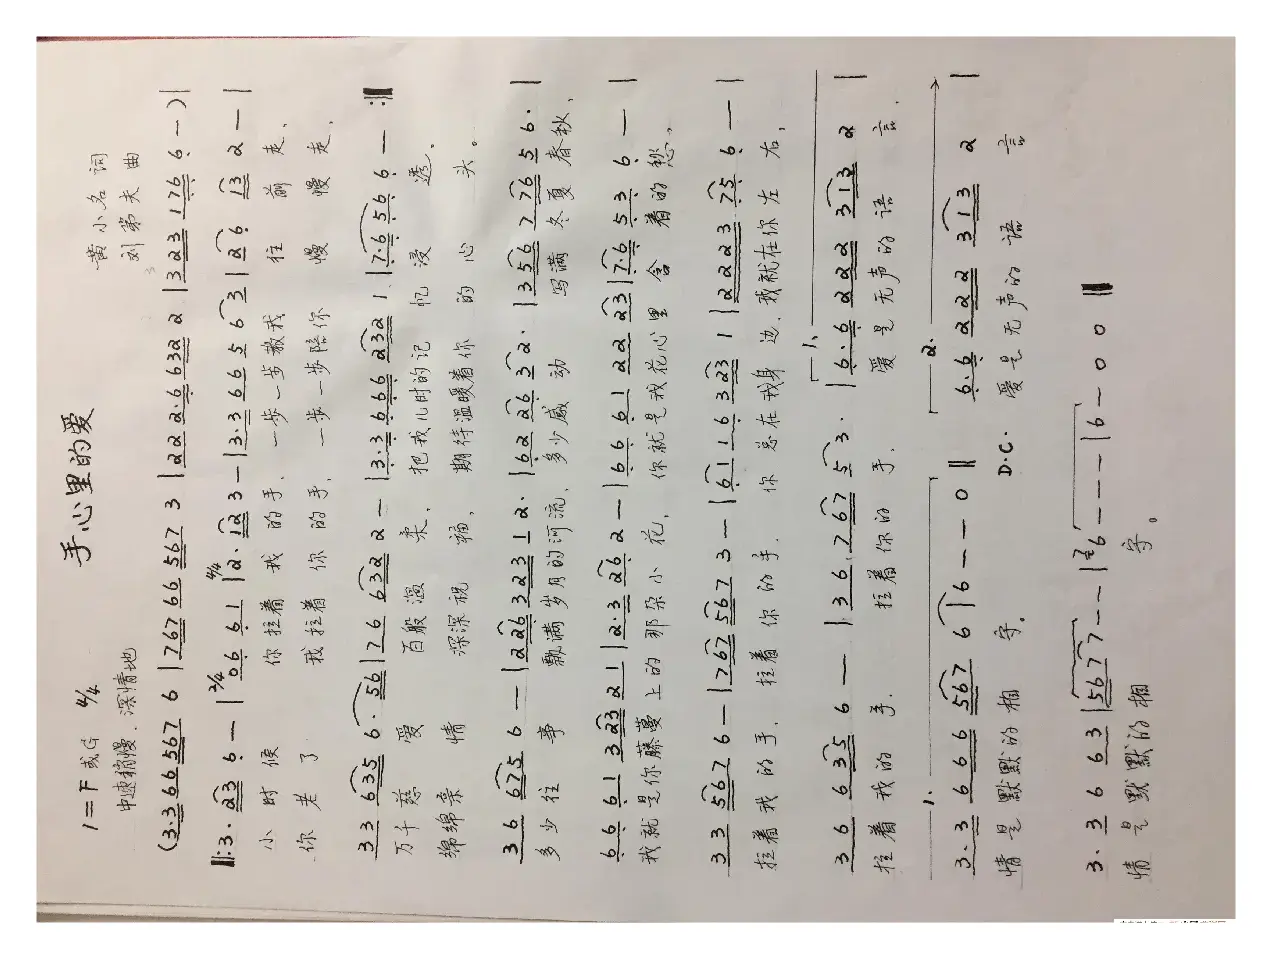 手心里的爱
1=F或G 4/4
黄小名 词
中速稍慢、深情地
刘第夫 曲
(3·3 6 6 5 6 7 6 | 7 6 7 6 7 6 6 5 6 7 3 | 2 2 2·6 6 3 2 2 | 3 2 3 1 7 6 6 —) |
‖: 3· 2 3 6 — | 2/4 0 6 6 1 | 4/4 2· 1 2 3 — | 3·3 6 6 5 6 3 | 2 6 1 3 2 — |
小时候 你拉着我的手、一步一步教我往前走、
你老了 我拉着你的手、一步一步陪你慢慢走、
3 3 6 3 5 6· 5 6 | 7 6 6 3 2 2 — | 3·3 6 6 6 2 3 2 1 | 7·6 5 6 6 — :‖
万千慈爱 百般温柔、把我儿时的记忆浸透。
绵绵亲情 深深祝福、期待温暖着你的心头。
3 6 6 7 5 6 — | 2 2 6 3 2 3 1 2· | 6 2 2 6 3 2· | 3 5 6 7 7 6 5 6· |
多少往事 飘满岁月的河流、多少感动 写满冬夏春秋、
6 6 6 1 3 2 3 2 1 | 2·3 2 6 2 — | 6 6 6 1 2 2 2 3 | 7·6 5 3 6 — |
我就是你藤蔓上的那朵小花、你就是我花心里含着的愁。
3 3 5 6 7 6 — | 7 6 7 5 6 7 3 — | 6 1 1 6 3 2 3 1 | 2 2 2 3 7 5 6 — |
拉着我的手、拉着你的手、你总在我身边、我就在你左右、
3 6 6 3 5 6 — | 3 6 7 6 7 5 3· | 1. 6·6 2 2 2 3 1 3 2 |
拉着我的手、拉着你的手、爱是无声的语言、
1. 3·3 6 6 6 5 6 7 6 | 6 — — 0 ‖ 2. 6·6 2 2 2 3 1 3 2 |
情是默默的相守。 D.C. 爱是无声的语言
3·3 6 6 3 | 5 6 7 7 — — | 6 — — — | 6 — 0 0 ‖
情是默默的相守。